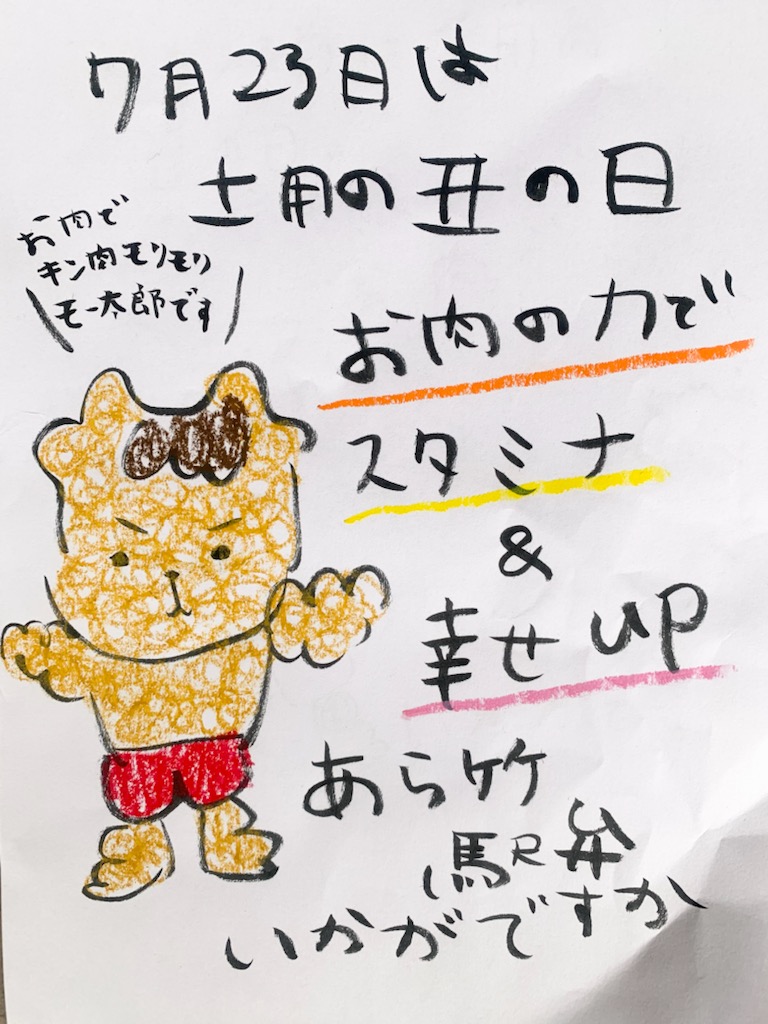 7月23日は
土用の丑の日
お肉で
キン肉モリモリ
モー太郎です
お肉の力で
スタミナ
&
幸せup
あら竹
駅弁
いかがですか